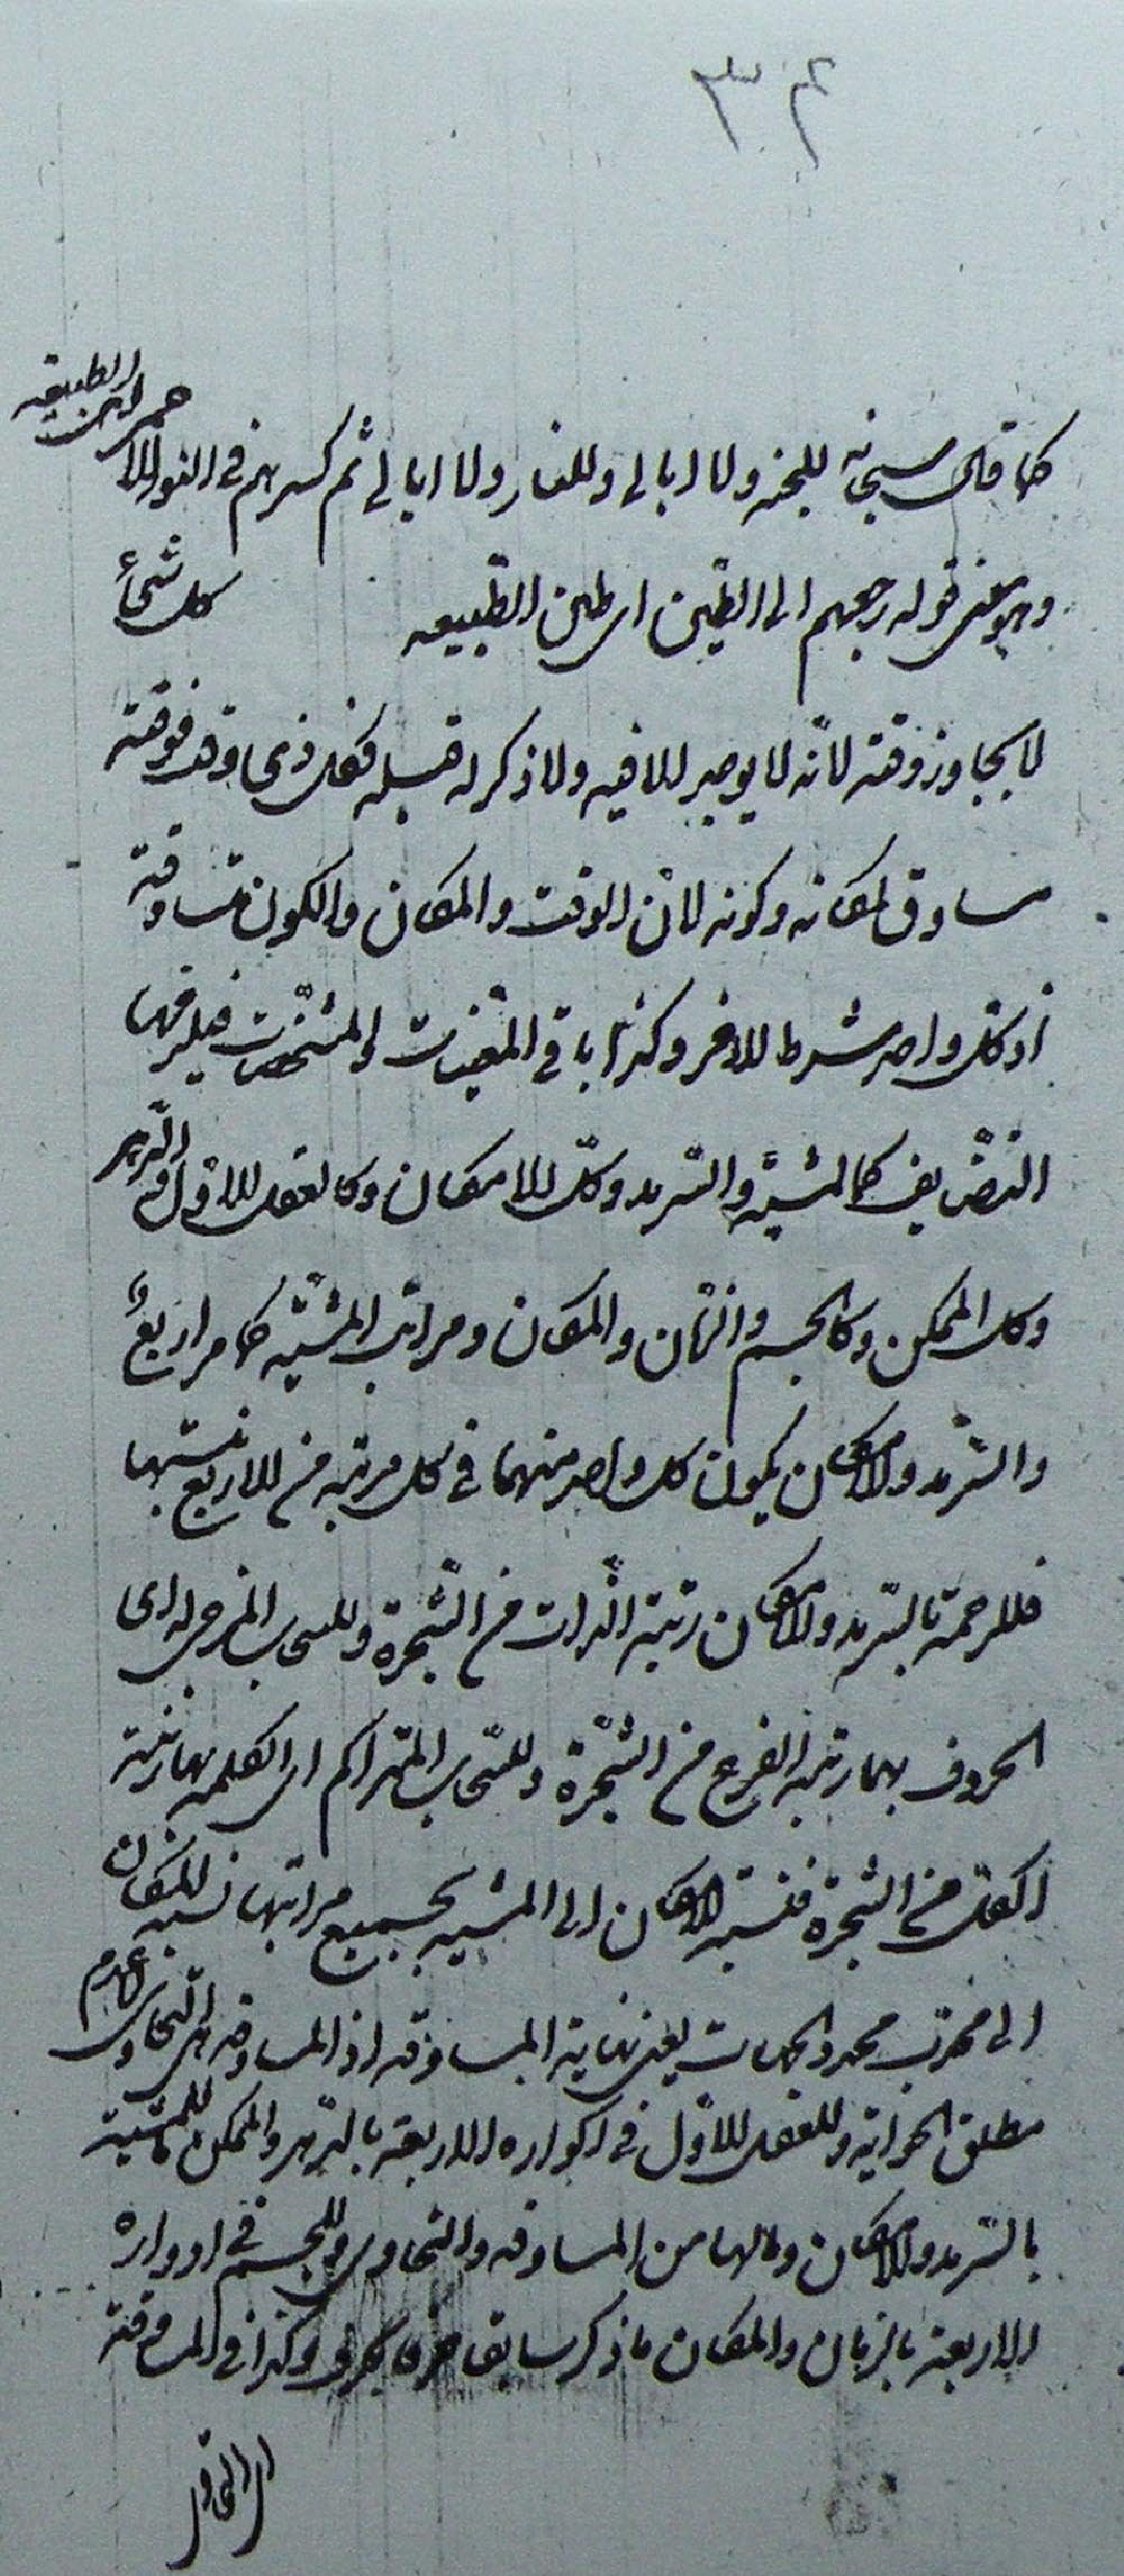 ٣٤
كما قال سبحانه للجنه ولا ابالى وللنار ولا ابالى ثم كسرهم فى النور الاحمر اى الطبيعه
وهو معنى قوله رجعهم الى الطين اى طين الطبيعه كل شئ
لا يجاوز وقته لانّه لا يوجد الا فيه ولا ذكر له قبله فكل ذى وقت فوقته
مساوق لمكانه وكونه لانّ الوقت والمكان والكون متساوقة
اذ كل واحد شرط للاخر وكذا باقى المعيّنات والمشخّصات فيلزمها
التضايف كالمشيّة والسّرمد وكل الامكان وكالعقل الاوّل والدّهر
وكل الممكن وكالجسم والزّمان والمكان ومراتب المشيّه كما مر اربعٌ
والسّرمد والامكان يكون كل واحد منهما فى كل مرتبه من الاربع بنسبتها
فللرحمة بالسّرمد والامكان رتبة الذات من الشّجرة وللسحاب المزجى اى
الحروف بهما رتبة الفرع من الشّجرة وللسّحاب المتراكم اى الكلمه بهما رتبة
الكل من الشجرة فنسبة الامكان الى المشيه بجميع مراتبها نسبة المكان
الى محدب محدد الجهات يعنى نهاية المساوقه اذ المساوقه هى التحاوى وعدم
مطلق الحواية وللعقل الاوّل فى اكواره الاربعة بالدّهر والممكن ما للمشية
بالسّرمد والامكان وما لها من المساوقه والتحاوى وللجسم فى ادواره
الاربعة بالزمان والمكان ما ذكر سابقا وكذا فى المساوقة
اى التحاوى